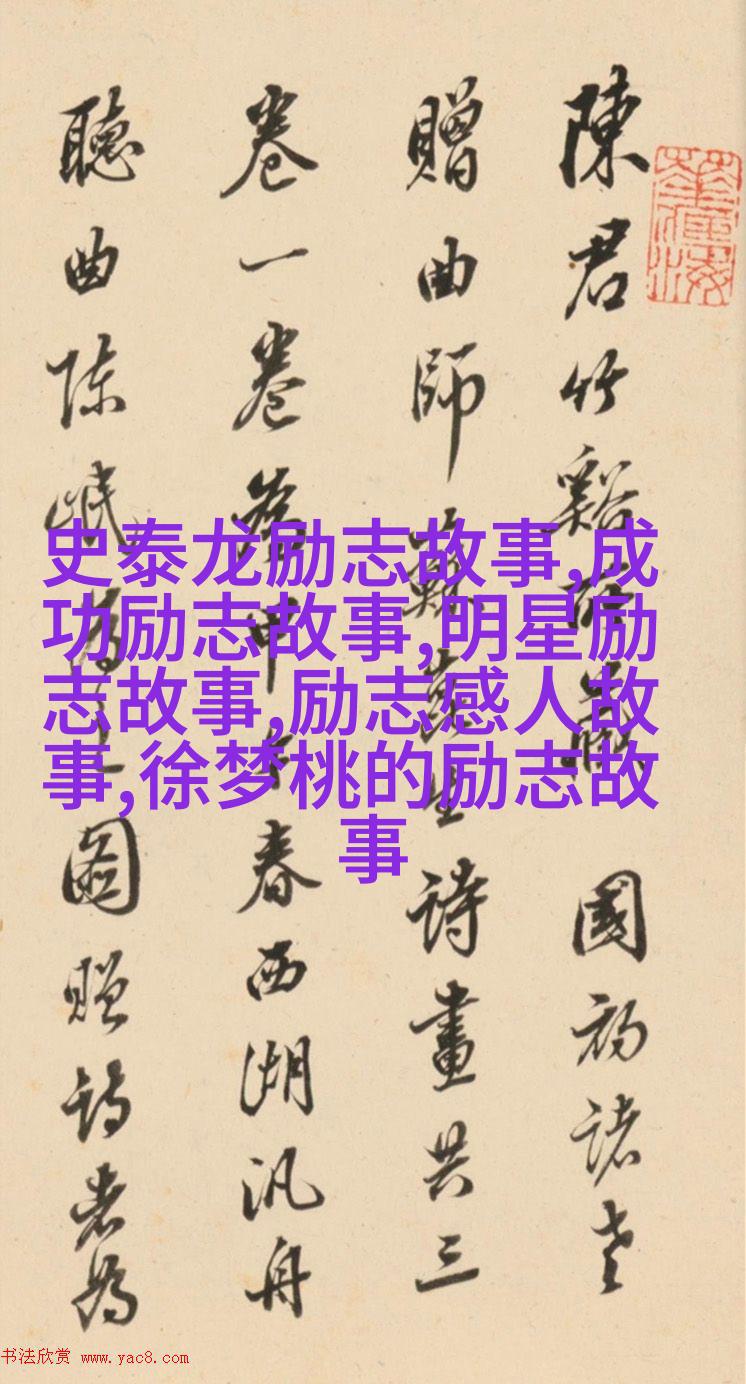 陳君竹谿所藏 國初諸老
贈曲師蘇崑生詩畫共三
卷一卷為甲午春西湖汎舟
聽曲陳岷為之圖贈詩者為
史泰龙励志故事,成
功励志故事,明星励
志故事,励志感人故
事,徐梦桃的励志故
事
书法欣赏 www.yac8.com